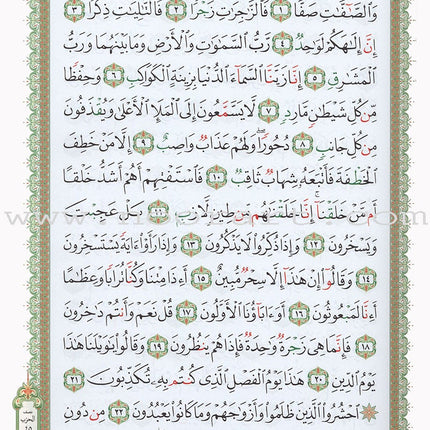 وَٱلصَّٰٓفَّٰتِ صَفًّا ١ فَٱلزَّٰجِرَٰتِ زَجْرًا ٢ فَٱلتَّٰلِيَٰتِ ذِكْرًا ٣
إِنَّ إِلَٰهَكُمْ لَوَٰحِدٌ ٤ رَّبُّ ٱلسَّمَٰوَٰتِ وَٱلْأَرْضِ وَمَا بَيْنَهُمَا وَرَبُّ
ٱلْمَشَٰرِقِ ٥ إِنَّا زَيَّنَّا ٱلسَّمَآءَ ٱلدُّنْيَا بِزِينَةٍ ٱلْكَوَاكِبِ ٦ وَحِفْظًا
مِّن كُلِّ شَيْطَٰنٍ مَّارِدٍ ٧ لَّا يَسَّمَّعُونَ إِلَى ٱلْمَلَإِ ٱلْأَعْلَىٰ وَيُقْذَفُونَ
مِن كُلِّ جَانِبٍ ٨ دُحُورًا ۖ وَلَهُمْ عَذَابٌ وَاصِبٌ ٩ إِلَّا مَنْ خَطِفَ
ٱلْخَطْفَةَ فَأَتْبَعَهُۥ شِهَابٌ ثَاقِبٌ ١٠ فَٱسْتَفْتِهِمْ أَهُمْ أَشَدُّ خَلْقًا
أَم مَّنْ خَلَقْنَآ ۚ إِنَّا خَلَقْنَٰهُم مِّن طِينٍ لَّازِبٍ ١١ بَلْ عَجِبْتَ
وَيَسْخَرُونَ ١٢ وَإِذَا ذُكِّرُوا۟ لَا يَذْكُرُونَ ١٣ وَإِذَا رَأَوْا۟ ءَايَةً يَسْتَسْخِرُونَ
١٤ وَقَالُوٓا۟ إِنْ هَٰذَآ إِلَّا سِحْرٌ مُّبِينٌ ١٥ أَءِذَا مِتْنَا وَكُنَّا تُرَابًا وَعِظَٰمًا
أَءِنَّا لَمَبْعُوثُونَ ١٦ أَوَءَابَآؤُنَا ٱلْأَوَّلُونَ ١٧ قُلْ نَعَمْ وَأَنتُمْ دَٰخِرُونَ
١٨ فَإِنَّمَا هِىَ زَجْرَةٌ وَٰحِدَةٌ فَإِذَا هُمْ يَنظُرُونَ ١٩ وَقَالُوا۟ يَٰوَيْلَنَا هَٰذَا
يَوْمُ ٱلدِّينِ ٢٠ هَٰذَا يَوْمُ ٱلْفَصْلِ ٱلَّذِى كُنتُم بِهِۦ تُكَذِّبُونَ ٢١
ٱحْشُرُوا۟ ٱلَّذِينَ ظَلَمُوا۟ وَأَزْوَٰجَهُمْ وَمَا كَانُوا۟ يَعْبُدُونَ ٢٢ مِن دُونِ